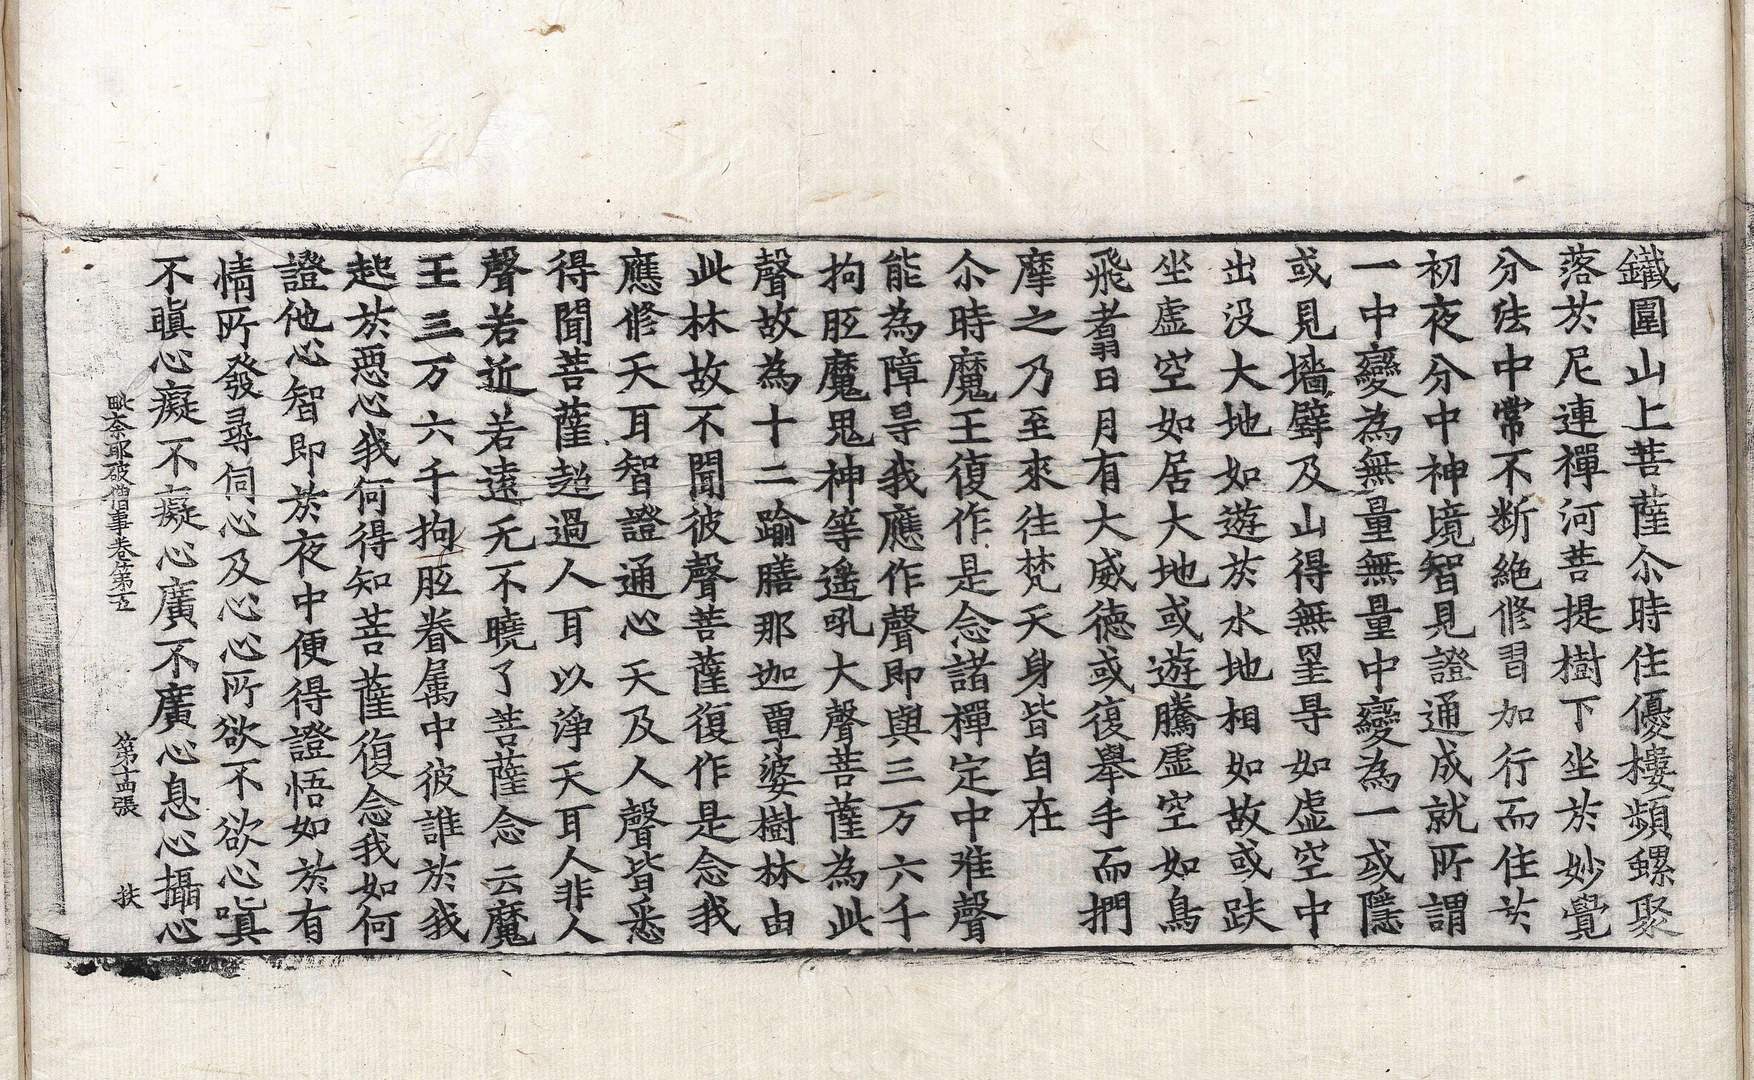 鐵圍山上菩薩尒時住優樓頻螺聚
落於尼連禪河菩提樹下坐於妙覺
分法中常不斷絶修習加行而住於
初夜分中神境智見證通成就所謂
一中變為無量無量中變為一或隱
或見墻壁及山得無罣㝵如虛空中
出没大地如遊於水地相如故或趺
坐虛空如居大地或遊騰虛空如鳥
飛翥日月有大威德或復舉手而捫
摩之乃至來往梵天身皆自在
尒時魔王復作是念諸禪定中唯聲
能為障㝵我應作聲即與三万六千
拘胝魔鬼神等遙吼大聲菩薩為此
聲故為十二踰膳那迦覃婆樹林由
此林故不聞彼聲菩薩復作是念我
應修天耳智證通心天及人聲皆悉
得聞菩薩超過人耳以淨天耳人非人
聲若近若遠无不曉了菩薩念云魔
王三万六千拘胝眷属中彼誰於我
起於惡心我何得知菩薩復念我如何
證他心智即於夜中便得證悟如於有
情所發尋伺心及心心所欲不欲心嗔
不嗔心癡不癡心廣不廣心息心攝心
毗奈耶破僧事卷第五 第十四張 扶